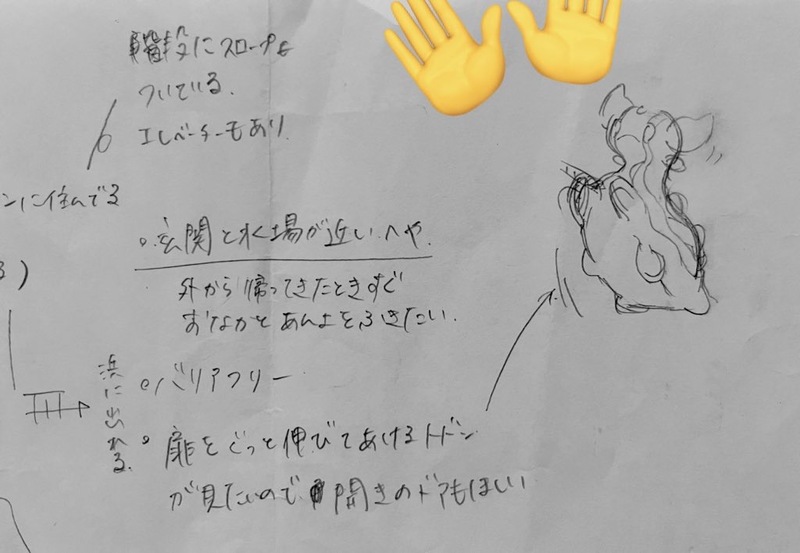 階段にスロープも
ついている。
エレベーターもあり
ンに住んでる
。玄関と水場が近いへや。
外から帰ってきたときすぐ
おなかとあんよをふきたい。
。バリアフリー
浜に出れる。
。扉をぐっと伸びてあけるトドン
が見たいので開きのドアもほしい